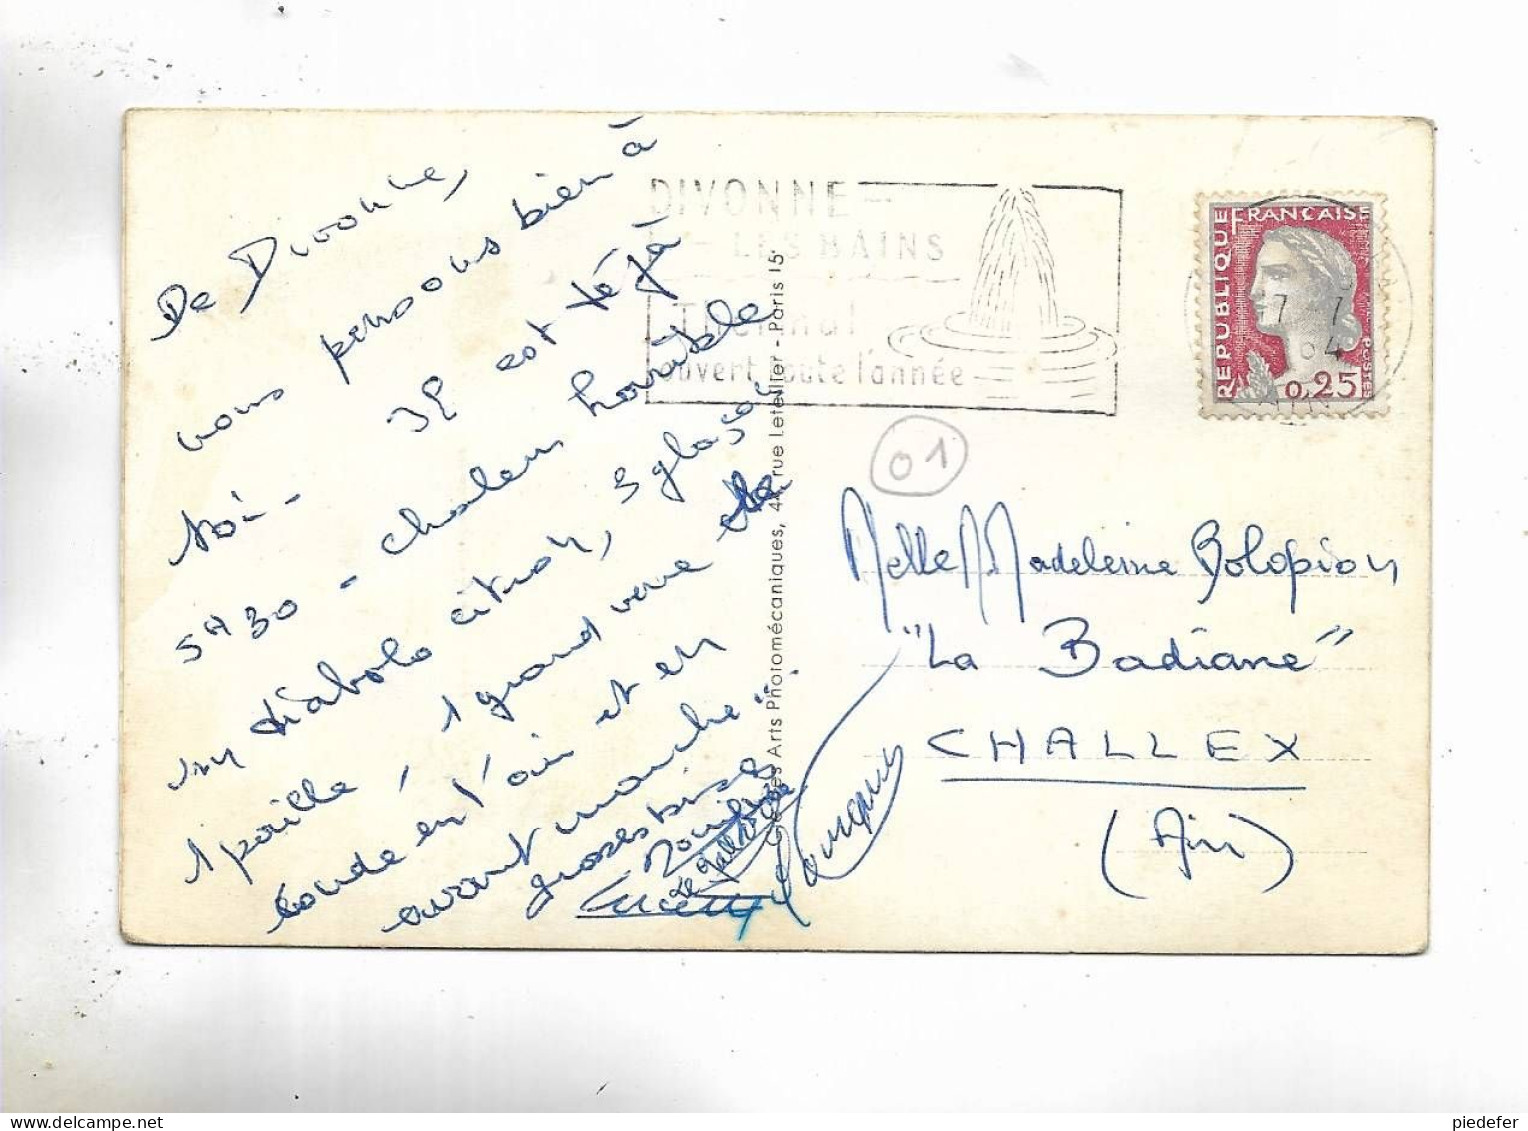 De Divonne,
nous pensons bien à
toi - Il est déjà
5h30 - chaleur horrible
un diabolo citron, 3 glaçons
1 paille, 1 grand verre de
coude en l'air et en
avant marche".
grosses bises
DIVONNE
LES BAINS
Thermal
ouvert toute l'année
REPUBLIQUE FRANÇAISE
POSTES
0,25
17 7
64
AIN
01
Arts Photomécaniques, 44, rue Letellier - Paris 15
Melle Madeleine Bolopion
"La Badiane"
CHALLEX
(Ain)
piedefer